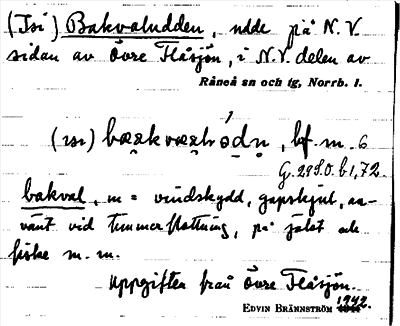 (Isi) Bakvaludden, udde på N.V.
sidan av Övre Flåsjön, i N.V. delen av
Råneå sn och tg, Norrb. l.
bf. m. 6
G. 29 S.O. b 1,72.
bakval, m = vindskydd, gapskjul, an-
vänt vid timmerflottning, på jakt och
fiske m. m.
Uppgiften från Övre Flåsjön.
EDVIN BRÄNNSTRÖM 1942.